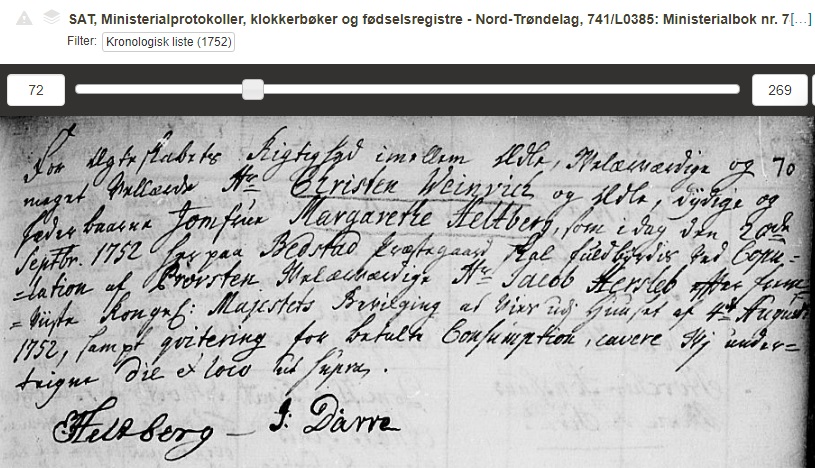 SAT, Ministerialprotokoller, klokkerbøker og fødselsregistre - Nord-Trøndelag, 741/L0385: Ministerialbok nr. 7[...]
Filter: Kronologisk liste (1752)
72
269
For Ægteskabets Rigtighed imellem Ædle, Velærværdige og 70
meget Vellærde Hr Christen Weinrich og Ædle, dydige og
baarne Jomfrue Margarethe Heltberg, som i dag den
Septbr. 1752 her paa Bedstad Præstegaard skal fuldbyrdes ved Copu=
=lation af Provsten Velærværdige Hr Jacob Hersleb efter frem
=viiste Kongel: Majestets Bevilging at vies udj Huuset af 4de Augusti
1752, samt qvitering for betalte Consumption, cavere Vj under=
teigne die & loco ut supra.
Heltberg J: Darre